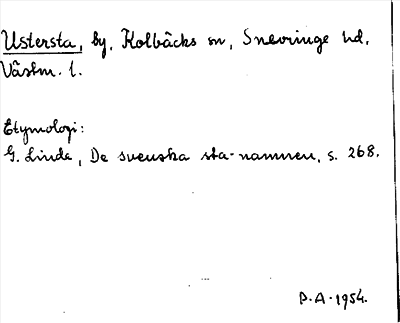 Ustersta, by, Kolbäcks sn, Snevringe hd,
Västm. l.
Etymologi:
G. Linde, De svenska sta-namnen, s. 268.
P.A. 1954.